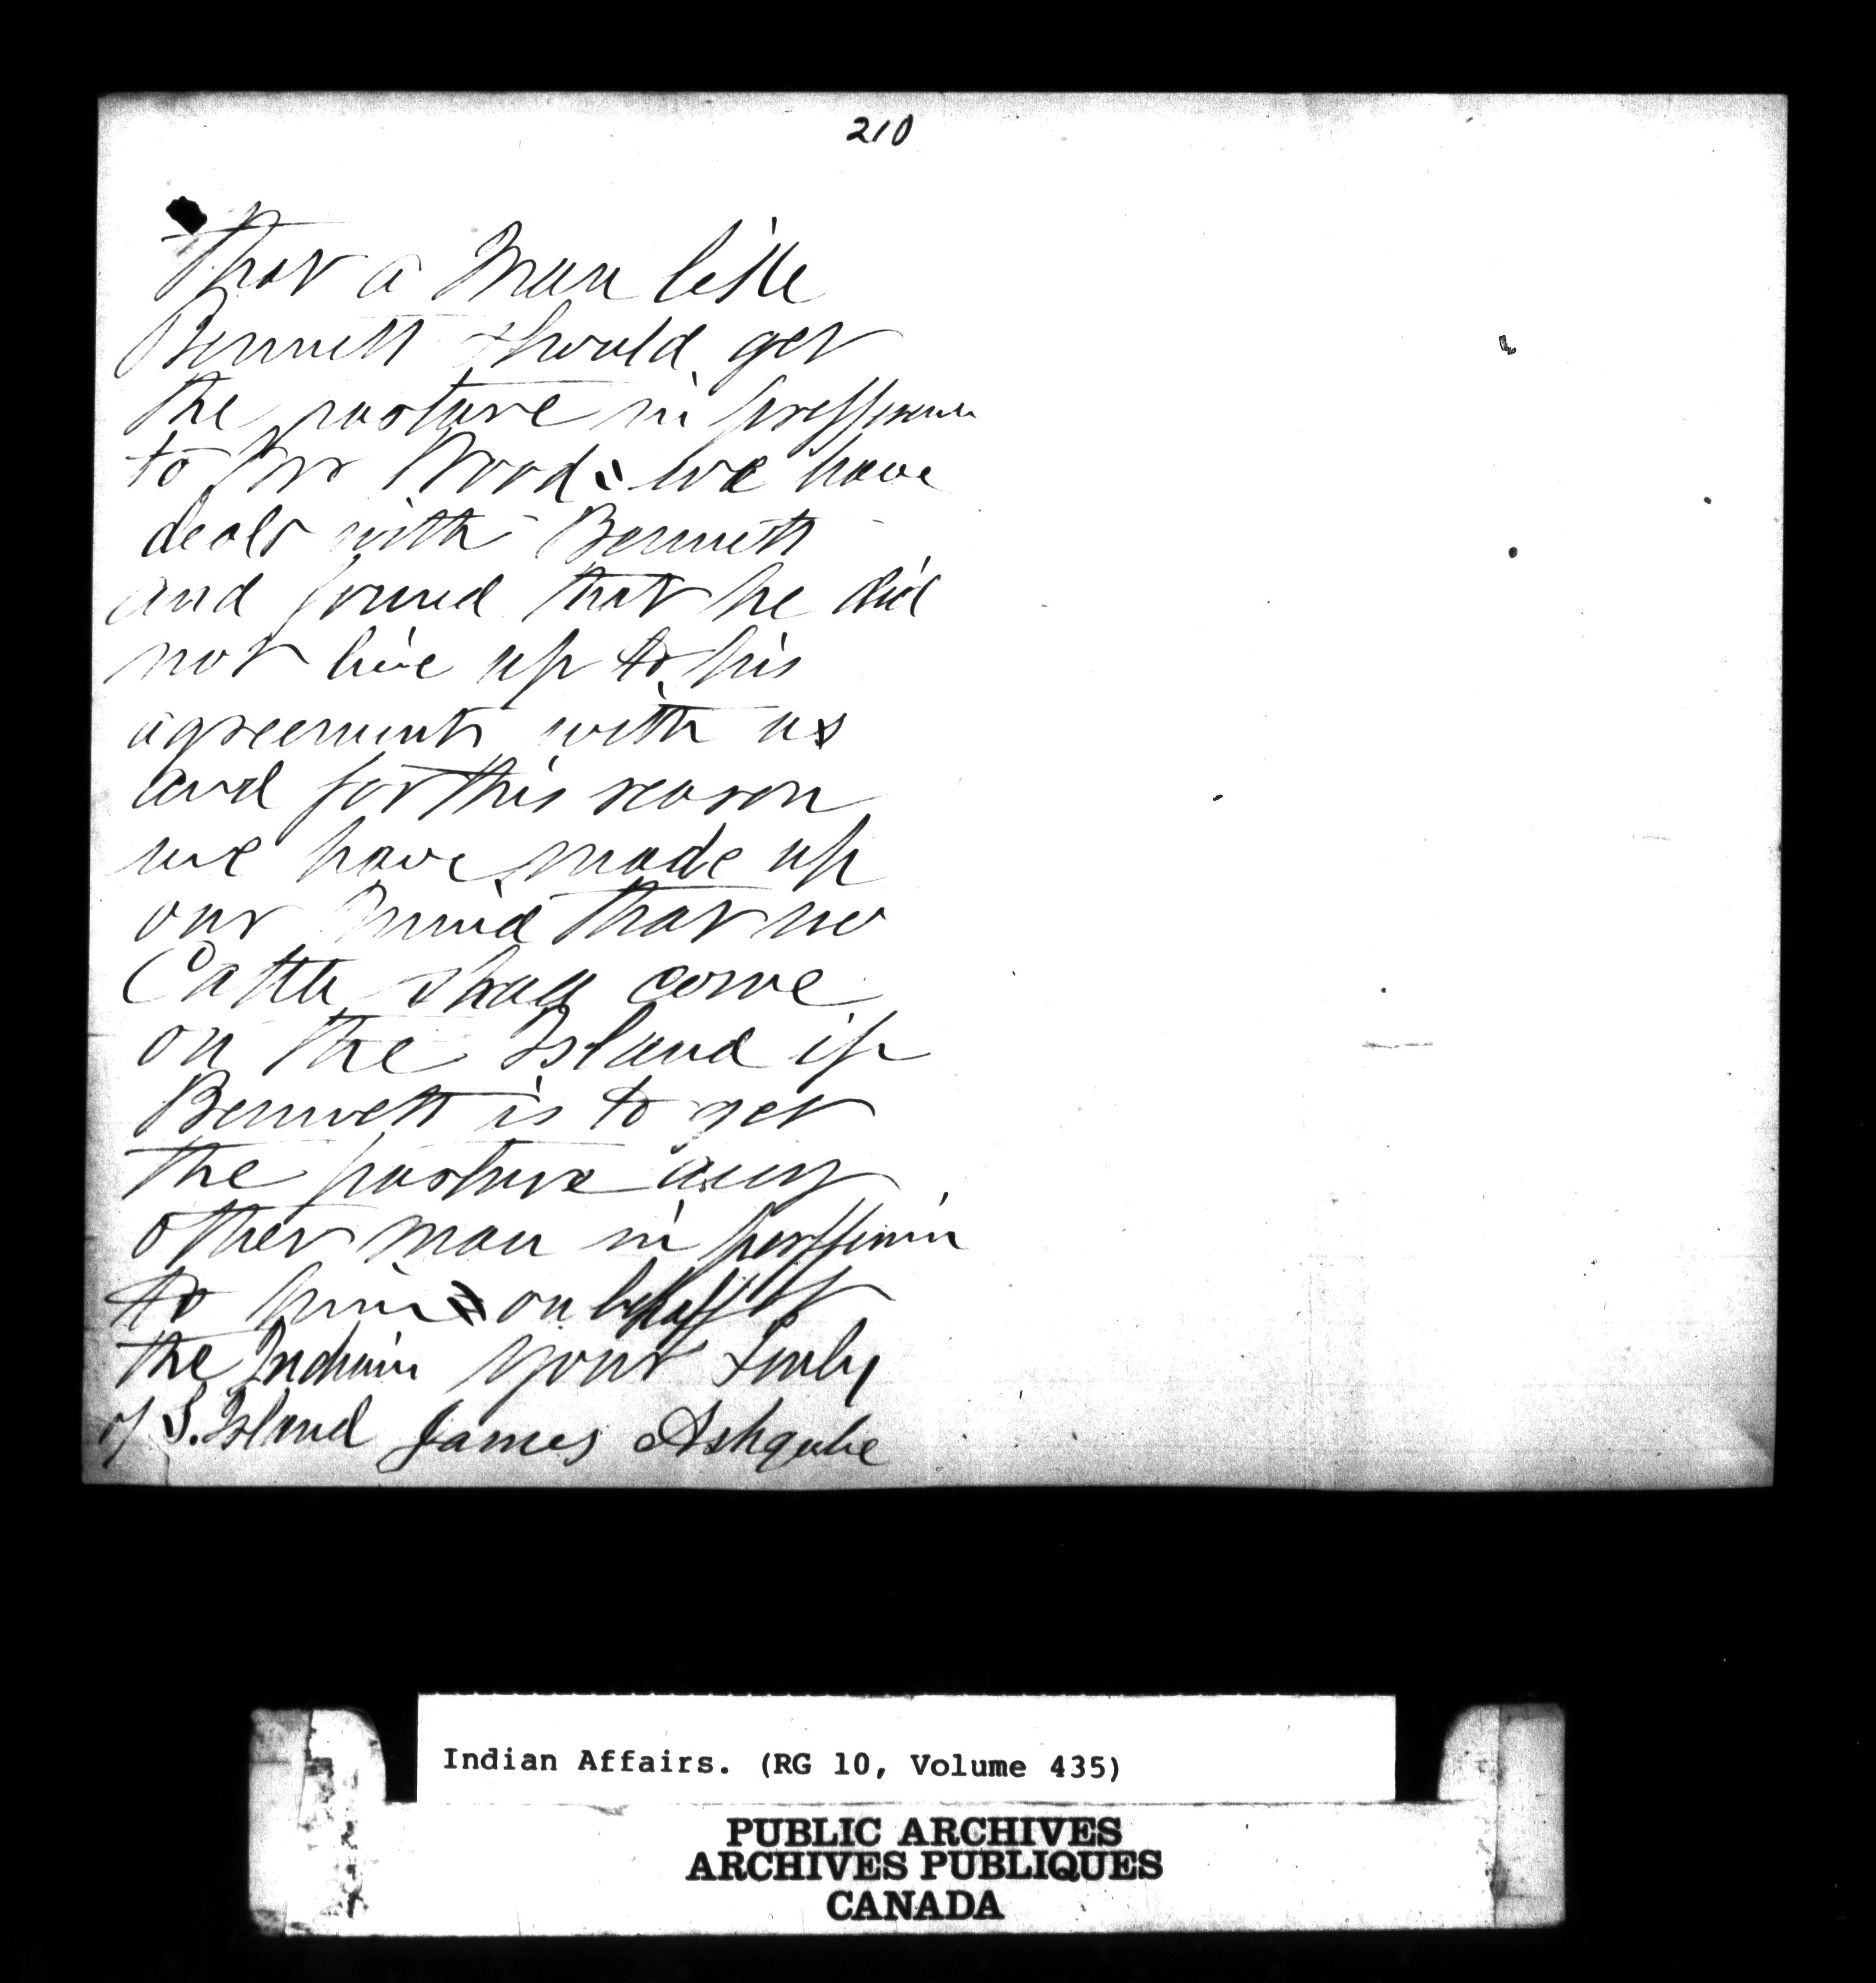 210
That a Man like
Bennett should get
the pasture in prefference
to Mr Wood we have
dealt with Bennett
and found that he did
not live up to his
agreements with us
and for this reason
we have made up
our mind that no
Cattle shall come
on the Island if
Bennett is to get
the pasture any
other man in
to him on behalf of
the Indian your truly
of S. Island James Ashquabe
Indian Affairs. (RG 10, Volume 435)
PUBLIC ARCHIVES
ARCHIVES PUBLIQUES
CANADA